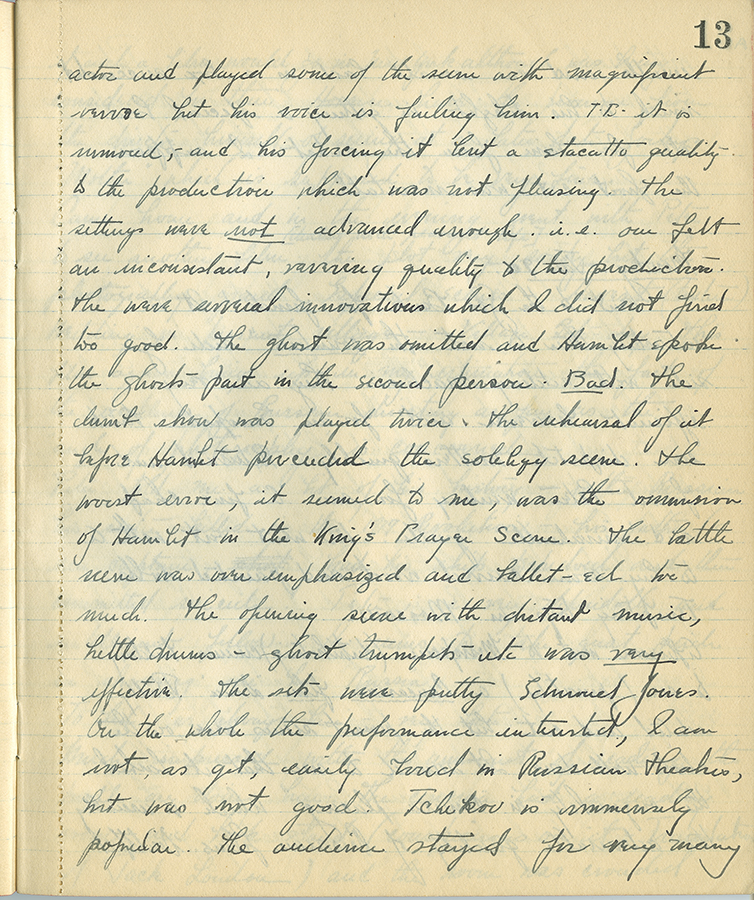 13
actor and played some of the scene with magnificint
vervre but his voice is failing him. T.B. it is
rumored,- and his forcing it lent a stacatto quality
to the production which was not pleasing. The
settings were not advanced enough. i.e. one felt
an inconsistant, wavering quality to the production.
The were several innovations which I did not find
too good. The ghost was omitted and Hamlet spoke
the ghosts part in the second person. Bad. The
dumb show was played twice. The rehearsal of it
before Hamlet preceeded the solelqy scene. The
worst error, it seemed to me, was the ommission
of Hamlet in the King's Prayer Scene. The battle
scene was over emphasized and ballet-ed too
much. The opening scene with distant music,
kettle drums - ghost trumpets etc was very
effective. The sets were pretty Jones.
On the whole the performance intersted, I am
not, as yet, easily bored in Russian theatres,
but was not good. Tchekov is immensely
popular. The audience stayed for very many